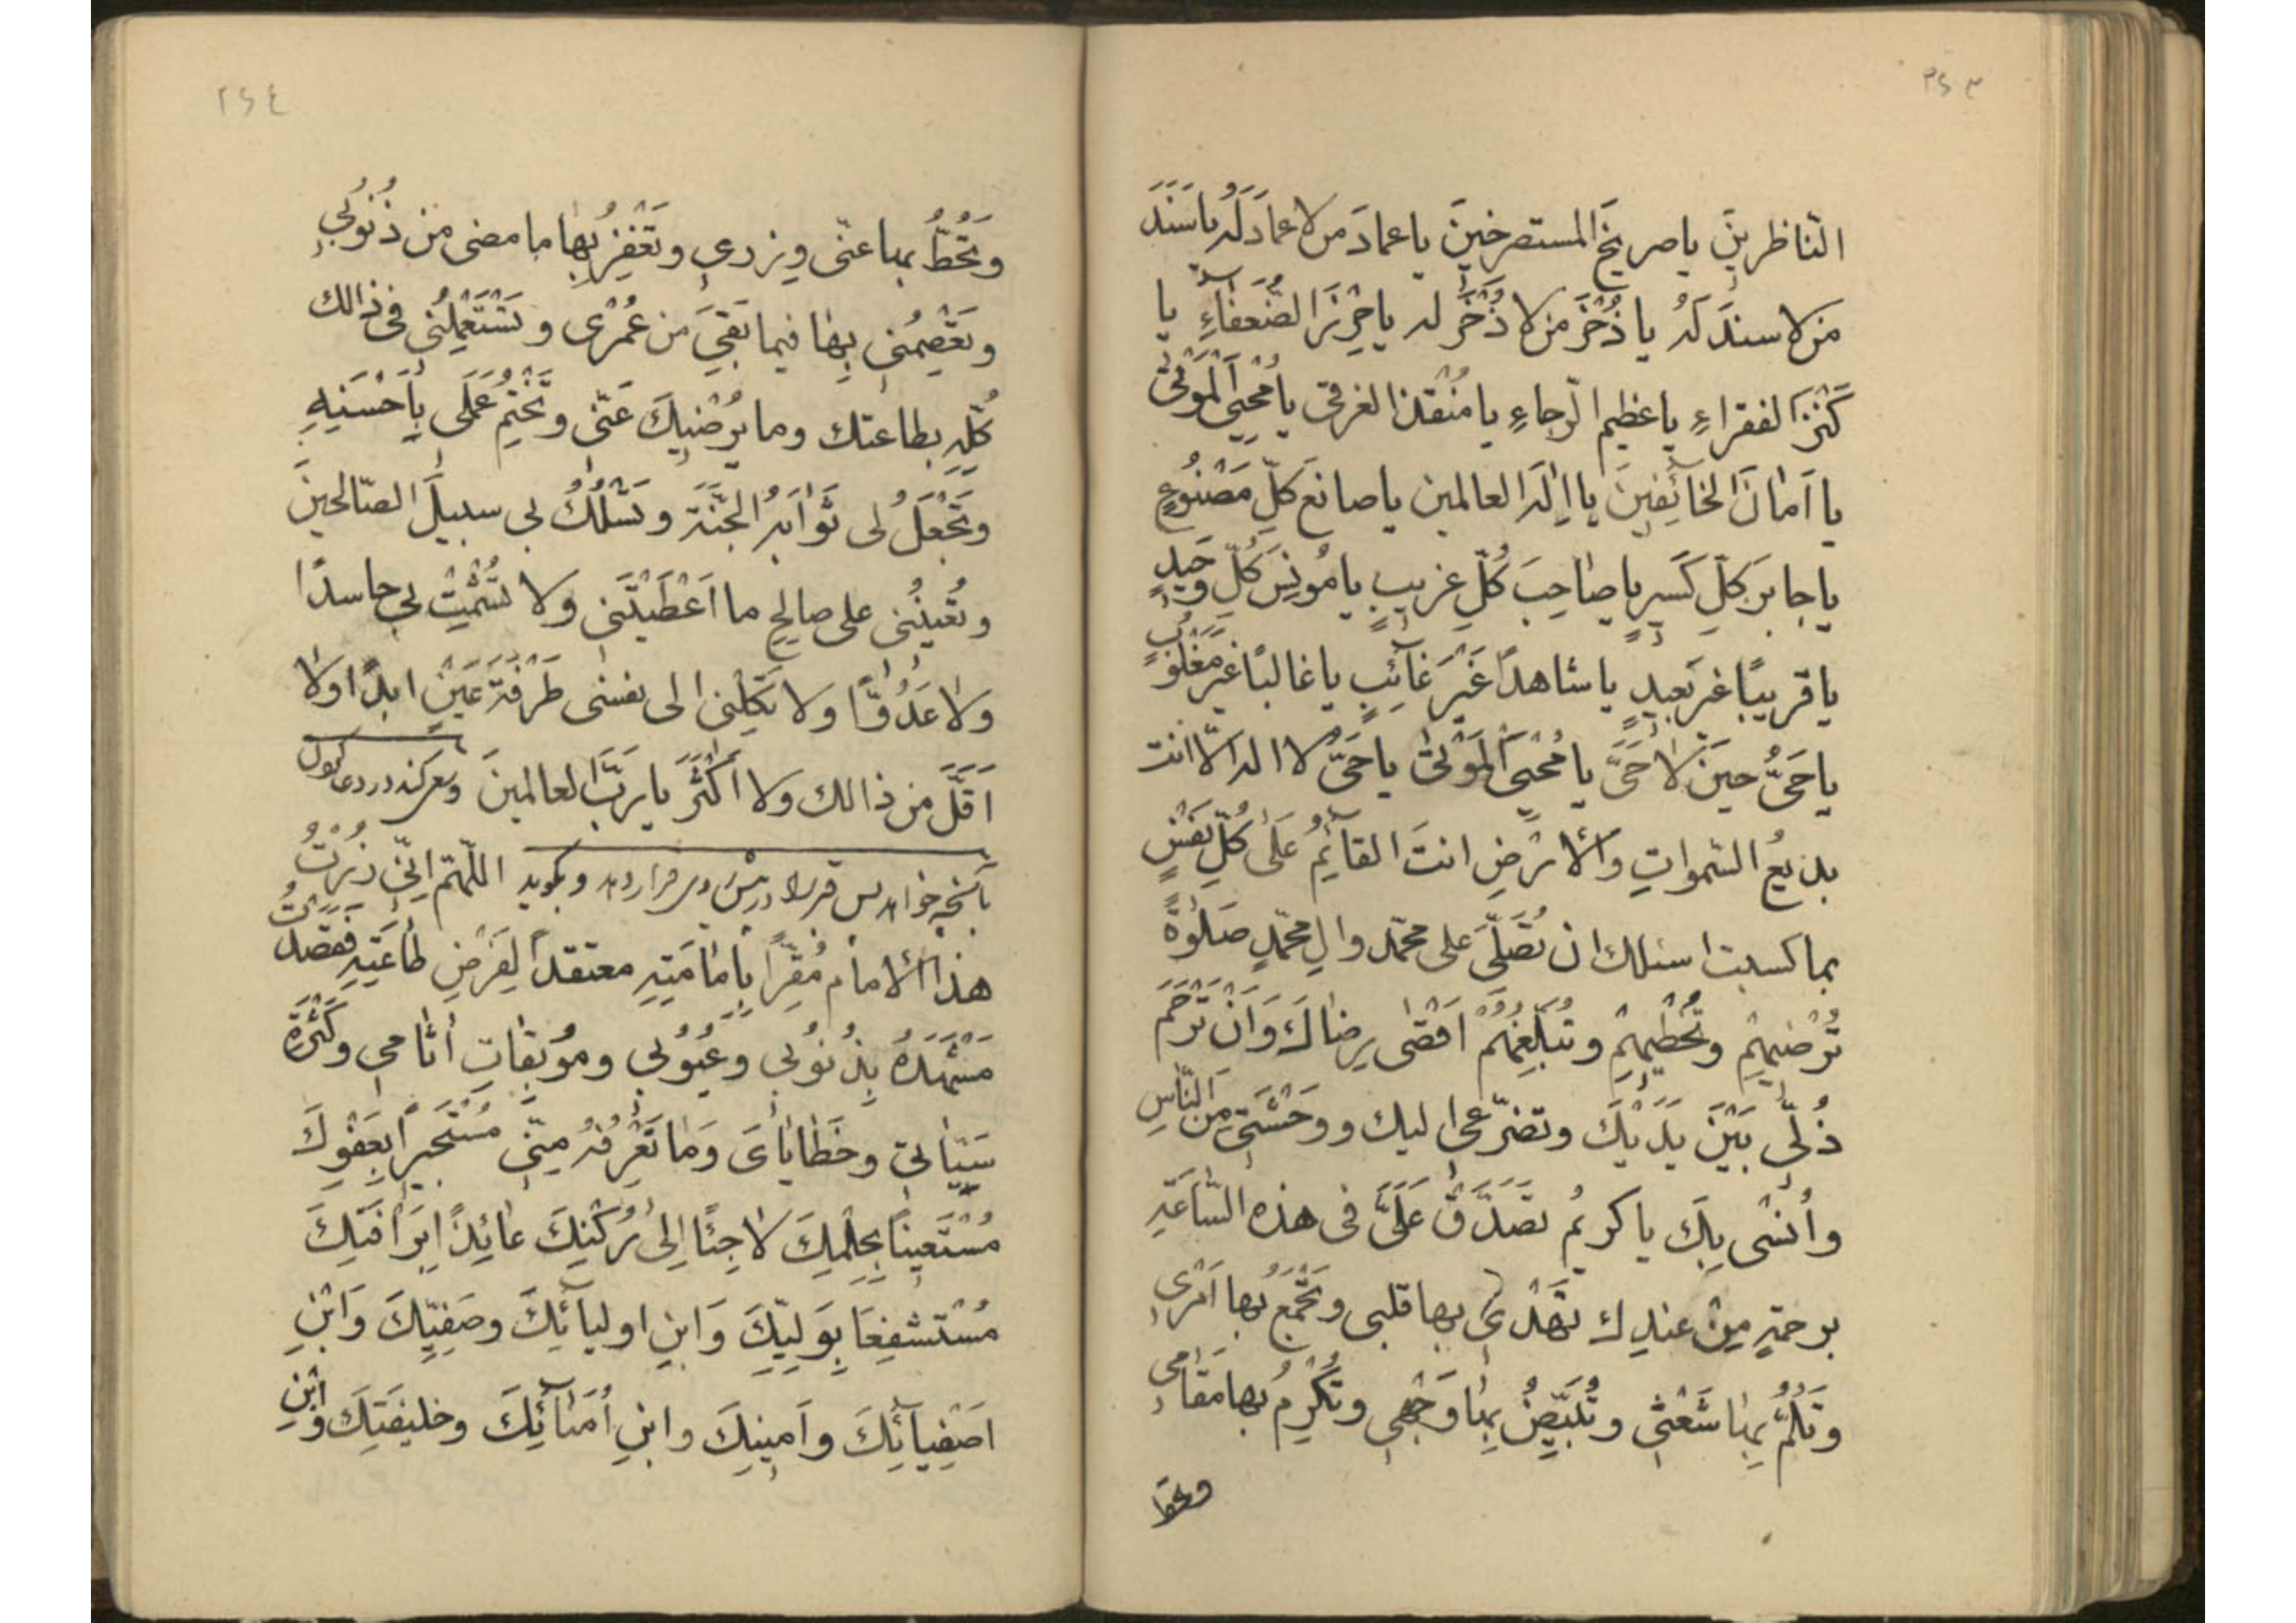 ٢٤٣
النّاظرينَ ياصريخَ المستصرخينَ ياعمادَ من لاعمادَ لَهُ ياسَنَدَ
من لاسندَ لَهُ يا ذُخْرَ من لا ذُخْرَ له ياحِرْزَ الضُّعَفٰاءِ يا
كَنْزَ الفقراءِ ياعظيم الرّجاءِ يا مُنْقذ الغرقى يامُحْيِىَ الْمَوْتىٰ
يا اَمٰانَ الخائِفينَ يا اِلٰهَ العالمين ياصانعَ كلِّ مَصْنُوعٍ
ياجابرَ كلِّ كَسيرٍ ياصٰاحِبَ كُلِّ غريبٍ يامُونِسَ كُلِّ وَحيدٍ
ياقريبًا غير بَعيدٍ ياشاهداً غَيْرَ غآئِبٍ ياغالبًا غيرَ مَغْلُوبٍ
ياحَىُّ حينَ لاٰحَىَّ يامُحْيِىَ الْمَوْتىٰ ياحَىُّ لا اله الاّ انت
بديعُ السّمواتِ والْاَرْضِ انتَ القآئِمُ عَلىٰ كُلِّ نَفْسٍ
بما كسبت اسئلك ان تُصَلِّىَ على محمّد وال محمّدٍ صَلٰوةً
تُرْضيهِمْ وتُحْظيهِمْ وتُبَلِّغُهُمْ اَقْصٰى رِضاكَ وَاَنْ تَرْحَمَ
ذُلّى بَيْنَ يَدَيْكَ وتضرّعى اليك ووَحْشَتى مِنَ النّاسِ
واُنْسْى بِكَ ياكريمُ تَصَدَّقْ عَلَىَّ فى هذه السّاعَةِ
برحمةٍ مِنْ عندِك تَهْدى بها قلبى وتَجْمَعُ بها اَمْرى
وتَلُمُّ بِهٰا شَعْثى وتُبَيِّضُ بِهٰا وَجْهى وتُكْرِمُ بها مَقٰامى
وتَحُطُّ
٢٤٤
وتَحُطُّ بها عنّى وِزرى وتَغْفِرُ بِهٰا ما مضى من ذُنُوبى
وتَعْصِمُنى بِهٰا فيما بَقِىَ من عُمْرى وتَسْتَعْمِلُنى فى ذٰالك
كُلِّهِ بطاعتك وما يُرْضيكَ عَنّى وتَخْتِمُ عَمَلى بِاَحْسَنِهِ
وتَجْعَلُ لى ثَوٰابَهُ الجَنَّةَ وتَسْلُكُ بى سبيلَ الصّالحينَ
وتُعينُنى على صالحِ ما اَعْطَيْتَنى وَلا تُشْمِتْ بى حاسدًا
ولاٰ عَدُوًّا ولا تَكِلْنى الى نفسى طَرْفَةَ عَيْنٍ ابدًا ولاٰ
اَقَلَّ من ذالك ولا اَكْثَرَ يا رَبَّ العالمينَ وسعى كند در دعا كردن
بآنچه خواهد پس قبر را در پيش روى قرار دهد وبگويد اللّهمّ اِنّى زُرْتُ
هذا الْاِمامَ مُقِرّاً بِاِمٰامَتِهِ معتقداً لِفَرْضِ طٰاعَتِهِ فَقَصَدْتُ
مَشْهَدَهُ بِذُنُوبى وعُيُوبى ومُوبِقٰاتِ اٰثامى وكَثْرَةِ
سَيِّئٰاتى وخَطٰايٰاىَ وَمٰا تَعْرِفُهُ مِنّى مُسْتَجيراً بِعَفْوِكَ
مُسْتَعيناً بِحِلْمِكَ لاٰجِئًا اِلىٰ رُكْنِكَ عٰائِذاً بِرَاْفَتِكَ
مُسْتشفِعًا بِوَلِيِّكَ وَابْنِ اوليآئِكَ وصَفِيِّكَ وَابْنِ
اَصْفِيآئِكَ واَمينِكَ وابنِ اُمَنٰآئِكَ وخليفَتِكَ وَابْنِ